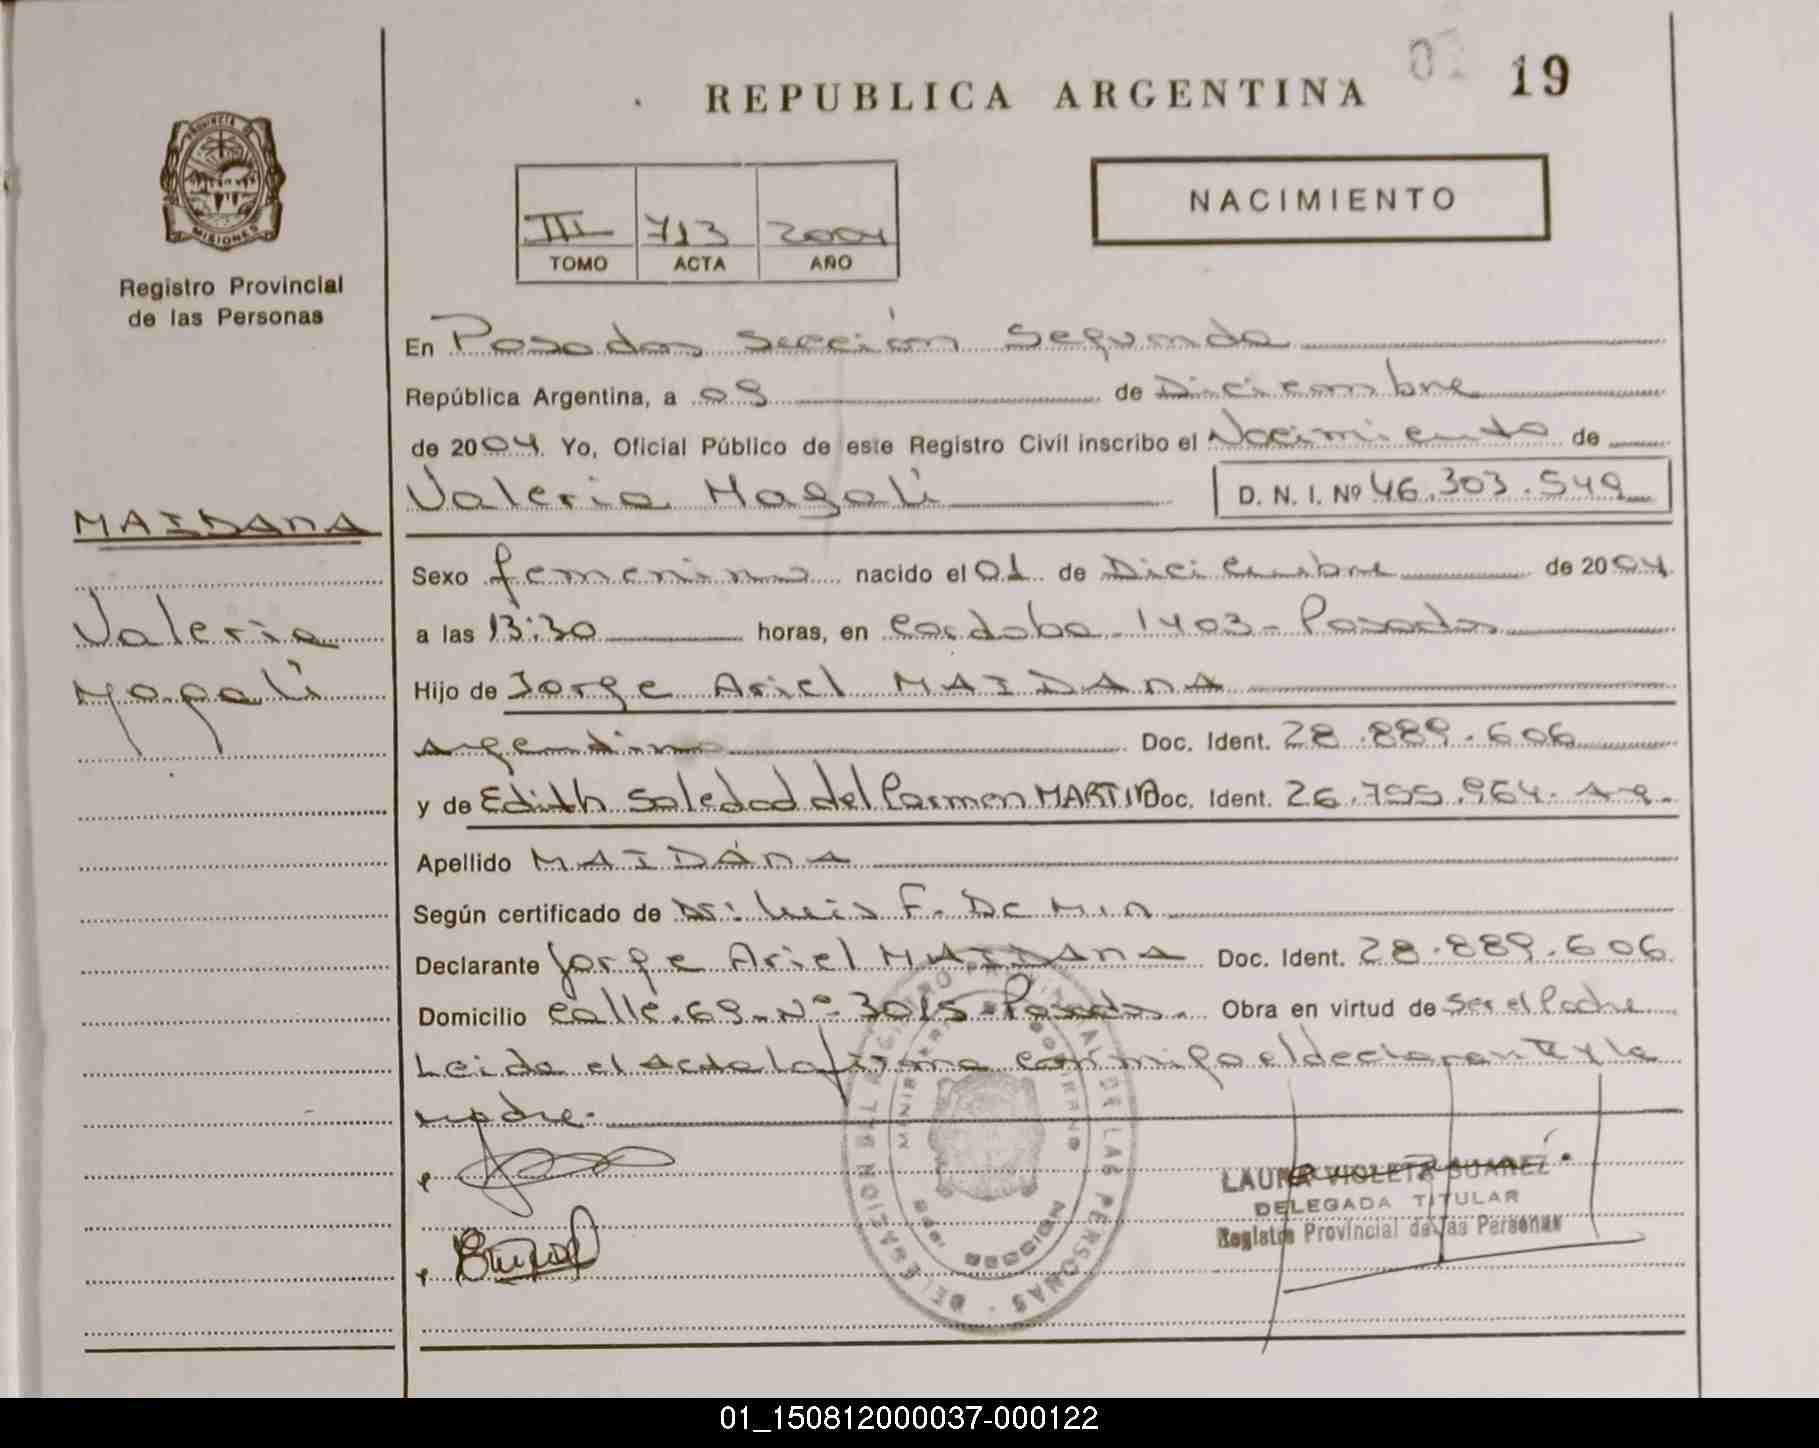 REPUBLICA ARGENTINA
19
PROVINCIA DE
MISIONES
Registro Provincial
de las Personas
III 713 2004
TOMO ACTA AÑO
NACIMIENTO
En Posadas Sección Segunda
República Argentina, a 09 de Diciembre
de 2004. Yo, Oficial Público de este Registro Civil inscribo el Nacimiento de
Valeria Magalí D. N. I. Nº 46.303.549
MAIDANA
Valeria
Magalí
Sexo femenino nacido el 01 de Diciembre de 2004
a las 13:30 horas, en Cordoba 1403 - Posadas
Hijo de Jorge Ariel MAIDANA
argentino Doc. Ident. 28.889.606
y de Edith Soledad del Carmen MARTIN Doc. Ident. 26.755.964. Ar.
Apellido MAIDANA
Según certificado de Dr: Luis F. De Min
Declarante Jorge Ariel MAIDANA Doc. Ident. 28.889.606
Domicilio calle 69 Nº 3015 Posadas. Obra en virtud de Ser el Padre
Leida el Acta la firma conmigo el declarante y la
madre.
DELEGACION DEL REGISTRO PROVINCIAL DE LAS PERSONAS
MISIONES
LAURA VIOLETA SUAREZ
DELEGADA TITULAR
Registro Provincial de las Personas
01_150812000037-000122